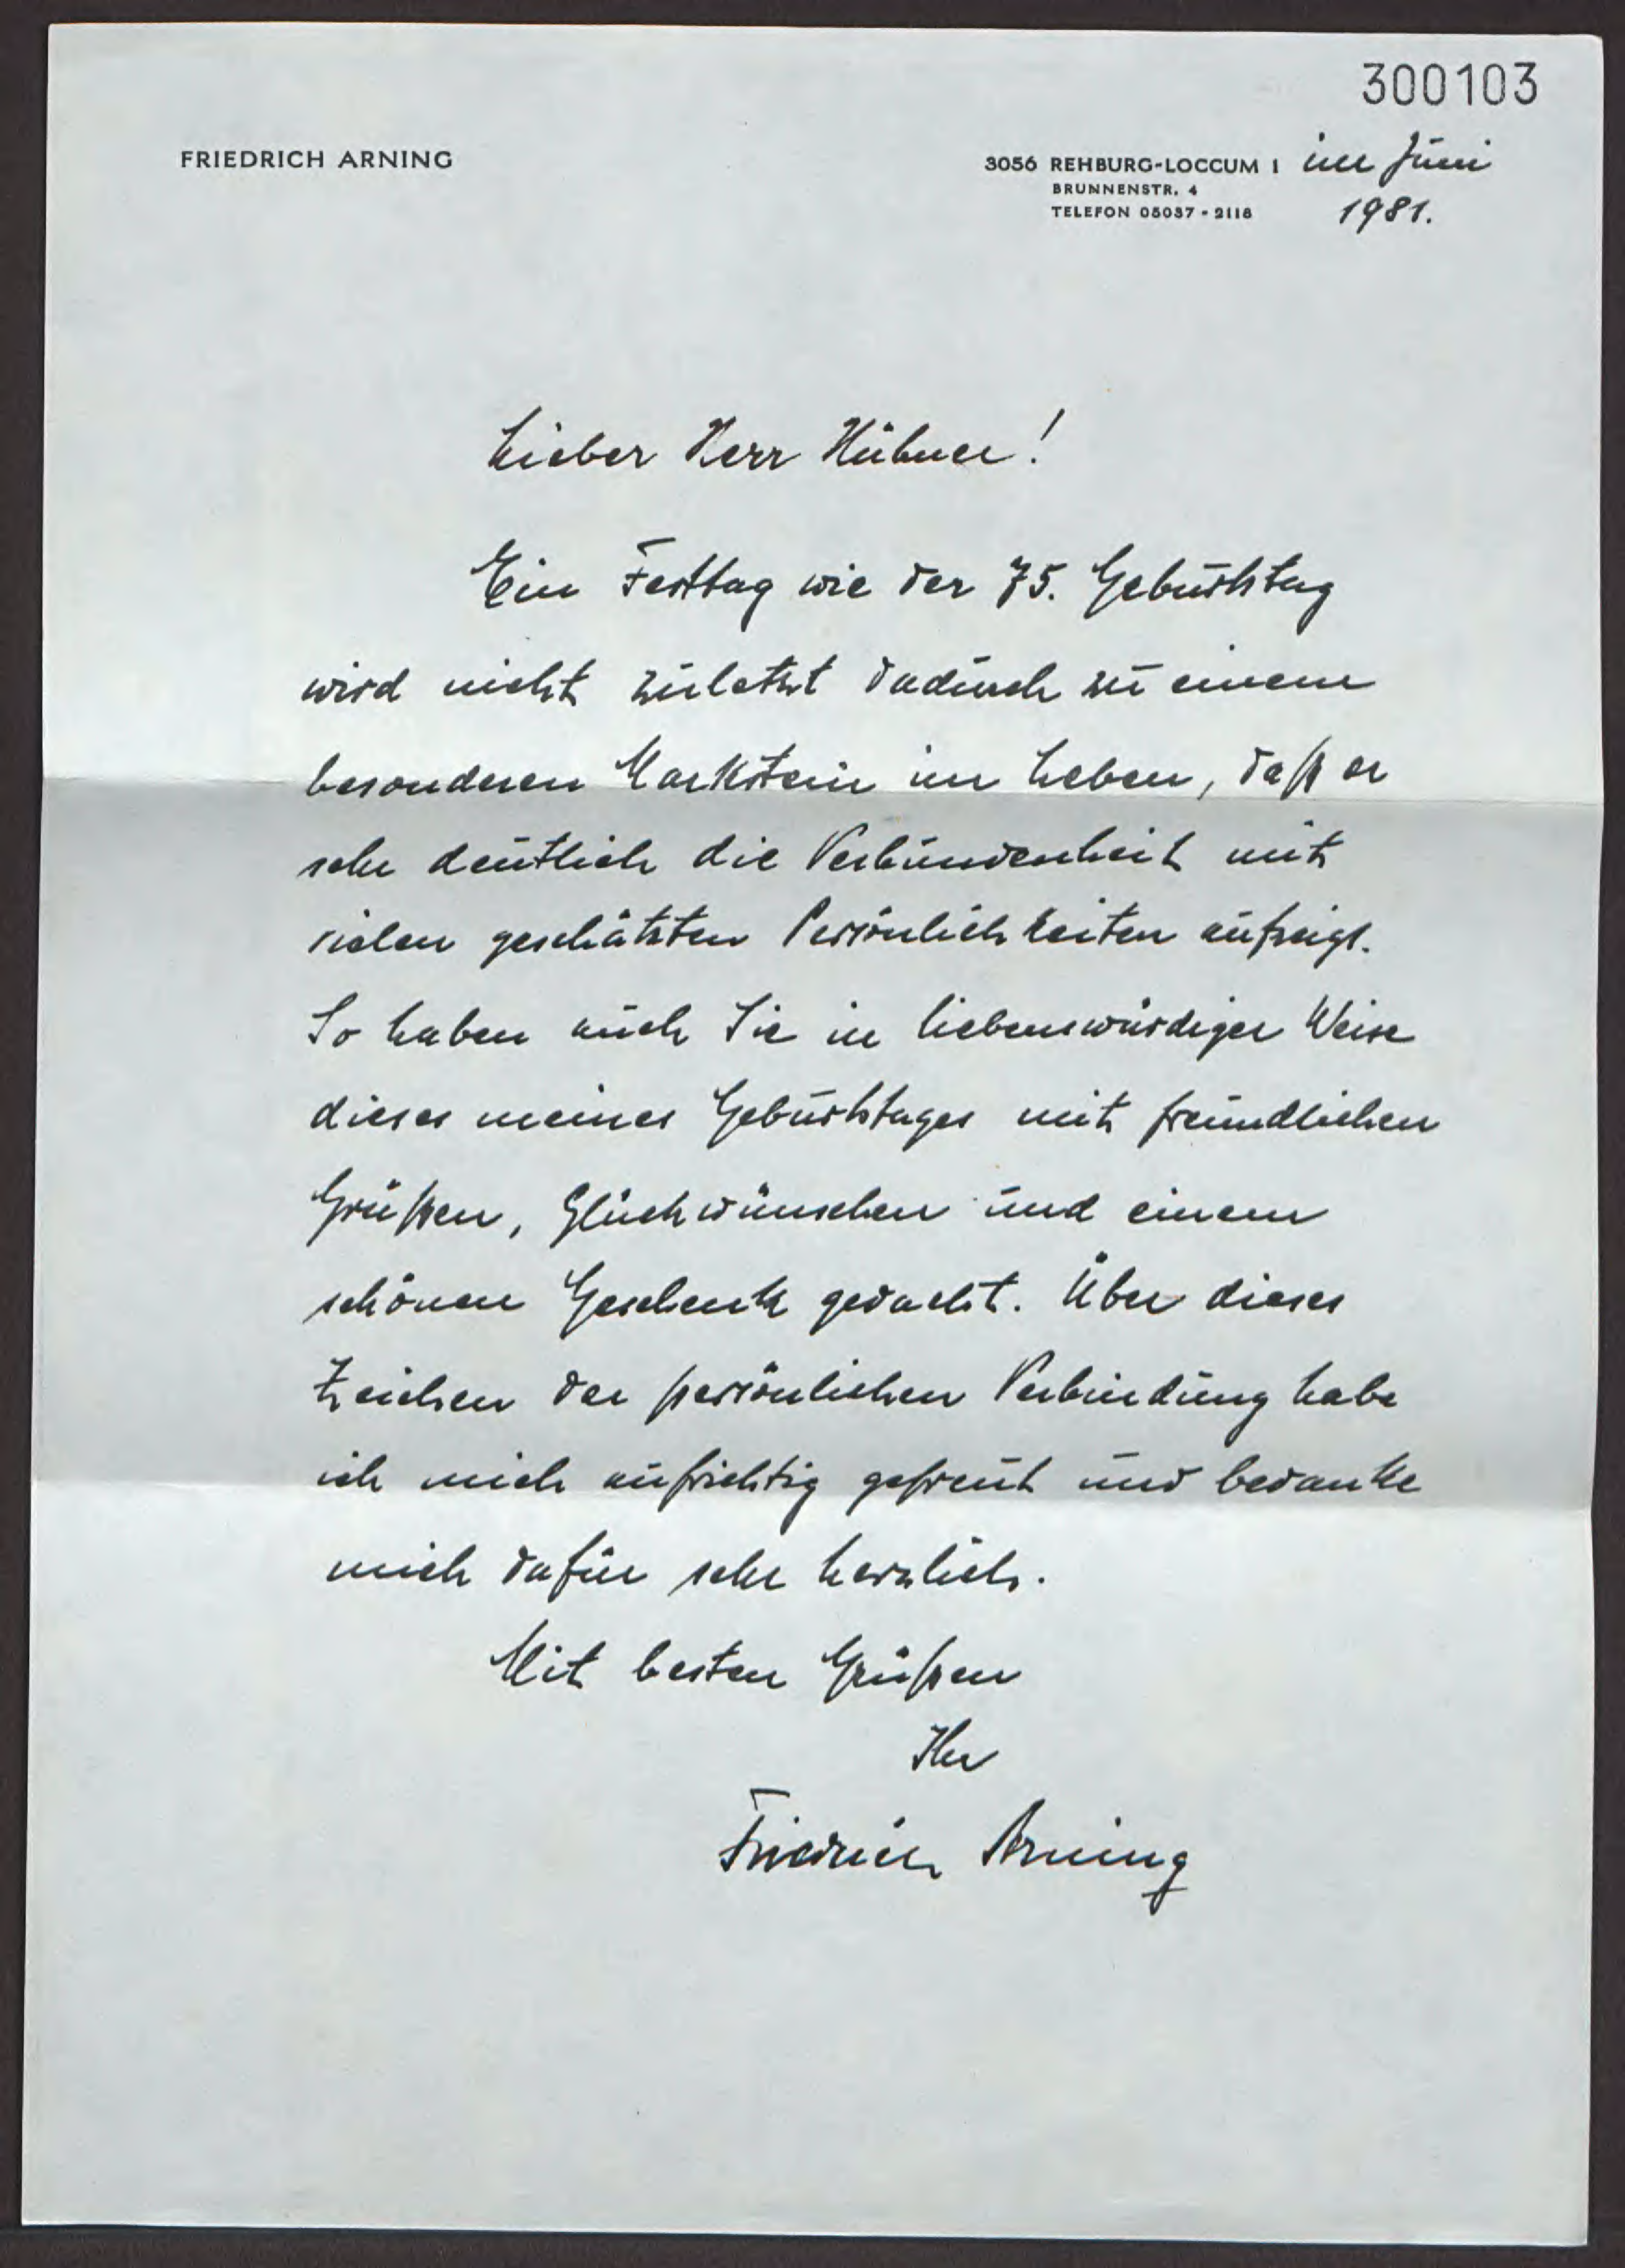 300103
FRIEDRICH ARNING
3056 REHBURG-LOCCUM 1 im Juni
BRUNNENSTR. 4
TELEFON 05037 - 2118 1981.
Lieber Herr Hübner!
Ein Festtag wie der 75. Geburtstag
wird nicht zuletzt dadurch zu einem
besonderen Markstein im Leben, daß er
sehr deutlich die Verbundenheit mit
vielen geschätzten Persönlichkeiten aufzeigt.
So haben auch Sie in liebenswürdiger Weise
dieses meines Geburtstages mit freundlichen
Grüßen, Glückwünschen und einem
schönen Geschenk gedacht. Über dieses
Zeichen der persönlichen Verbindung habe
ich mich aufrichtig gefreut und bedanke
mich dafür sehr herzlich.
Mit besten Grüßen
Ihr
Friedrich Arning